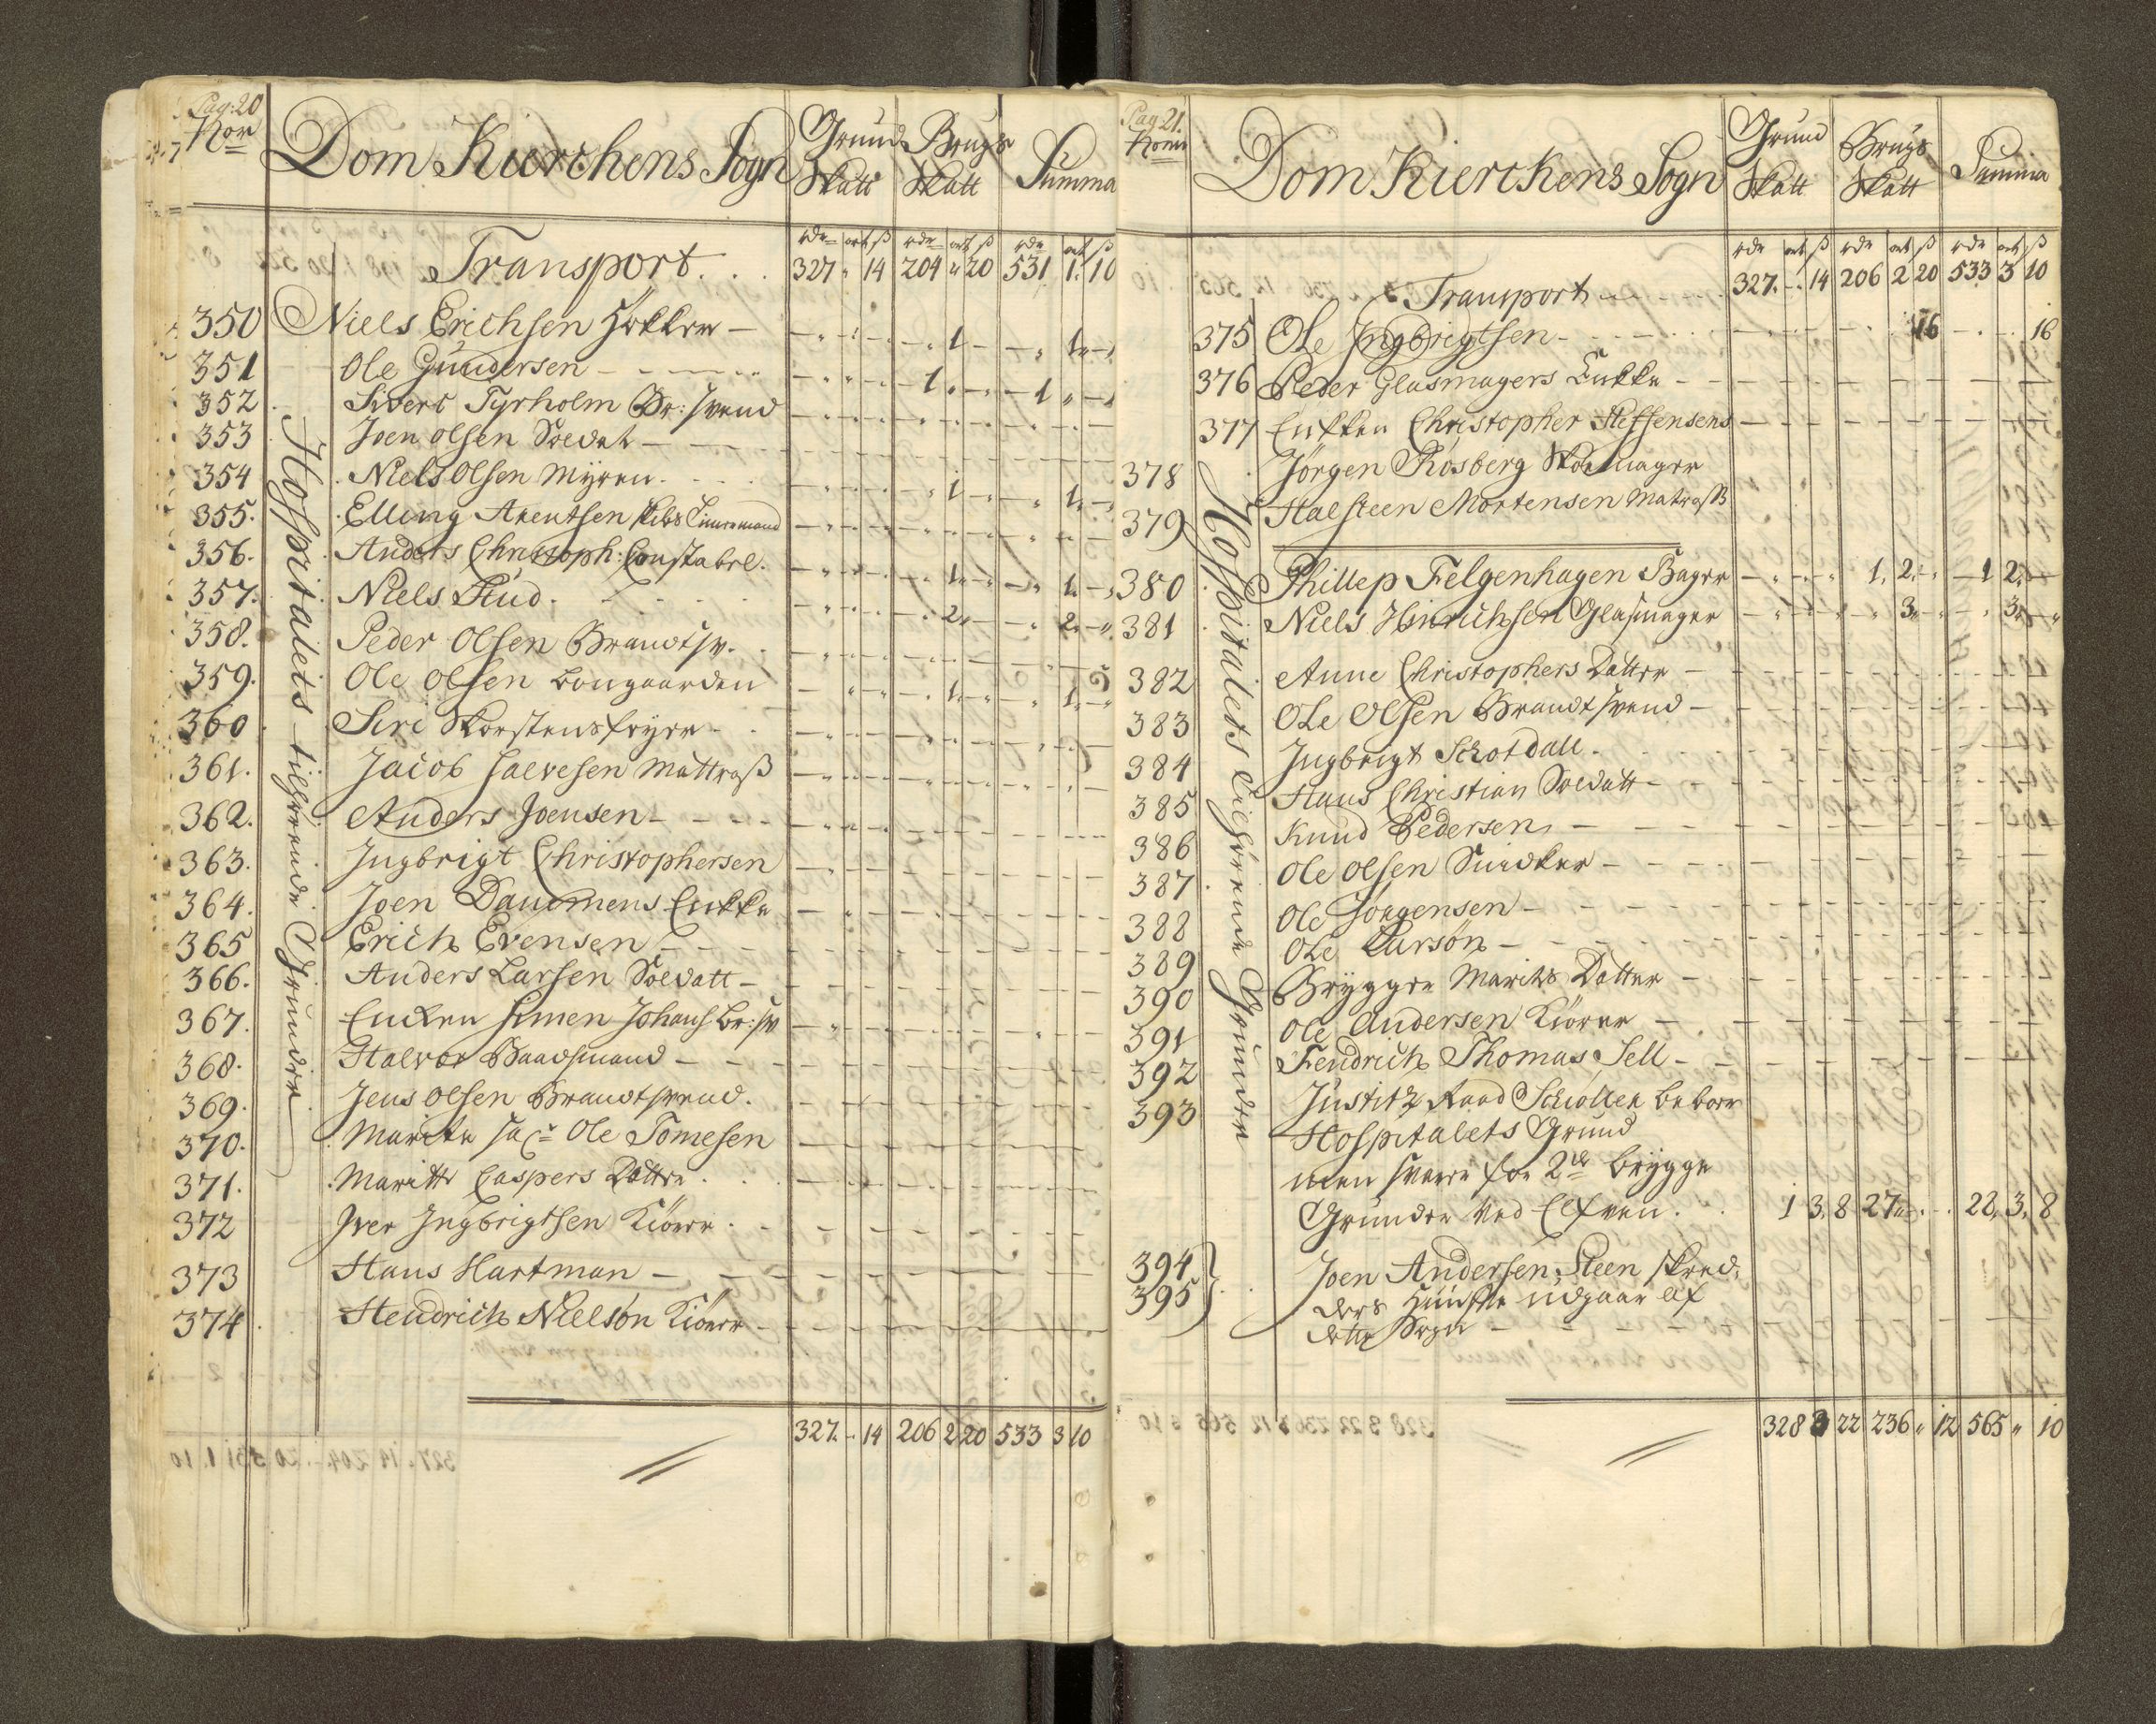 Pag: 20
Nor
Dom Kierckens Sogn
Grund Skatt
Brugs Skatt
Summa
rdr ort ß rdr ort ß rdr ort ß
Transport . . . 327 " 14 204 " 20 531 1. 10
Hospitalets tilhörende Grunder
350 Niels Erichsen Høkker - 1 - 1 -
351 Ole Gundersen - 1 - 1 -
352 Sivert Tyrholm Br: svend
353 Joen olsen Soldat
354 Niels Olsen Myren 1 - 1 -
355. Elling Arentsen skibs Timermand
356. Anders Christoph: Constabel. 1 - 1 -
357. Niels Stud 2 - 2 -
358. Peder Olsen Brandtsv.
359. Ole olsen Longaarden 1 - 1 -
360 Siri Skorstensfeyer
361. Jacob Salvesen Mattroß
362. Anders Joensen
363. Ingbrigt Christophersen
364. Joen Daucmens Enkke
365 Erich Evensen
366. Anders Larsen Soldatt
367. Encken Simen Johans Br: sv
368. Halvor Baadsmand
369. Jens olsen Brandtsvend.
370. Marite sal Ole Tomesen
371. Maritt Caspers Datter
372 Iver Ingbrigtsen Kiörer
373 Hans Hartman
374. Hendrich Nielsön Kiörer
327. - 14 206 2 20 533 3 10
Pag 21.
Dom Kierckens Sogn
Grund Skatt
Brugs Skatt
Summa
rdr ort ß rdr ort ß rdr ort ß
Transport 327. - 14 206 2 20 533 3 10
Hospitalets Tilhörende Grunder
375 Ole Ingbrigtsen 16 16
376 Peder Glasmagers Enkke
377 Enkken Christopher Steffensens
378 Jörgen Rosberg Skoemager
379 Halsteen Mortensen Matroß
380 Phillep Felgenhagen Bager 1. 2. - 1 2. -
381 Niels Hinrichsen Glasmager 3. - 3. -
382 Anne Christophers Datter
383 Ole Olsen Brandtsvend
384 Ingbrigt Schotdall
385 Hans Christian Soldatt
386 Knud Pedersen
387. Ole olsen Snidker
388 Ole Jörgensen
389 Ole Larsön
390 Brygger Marits Datter
391 Ole Andersen Kiörer
392 Fendrich Thomas Sell
393 Justitz Raad Schöller beboer
Hospitalets Grund
men svarer for 2de brygge
Grunder ved Elfven. 1 3. 8 27 " 28. 3. 8
394 Joen Andersen, Steen skred,
395 ders Huuse udgaar af
dette Sogn
328 3 22 236 " 12 565 " 10